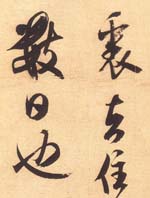 襄去住
數日也